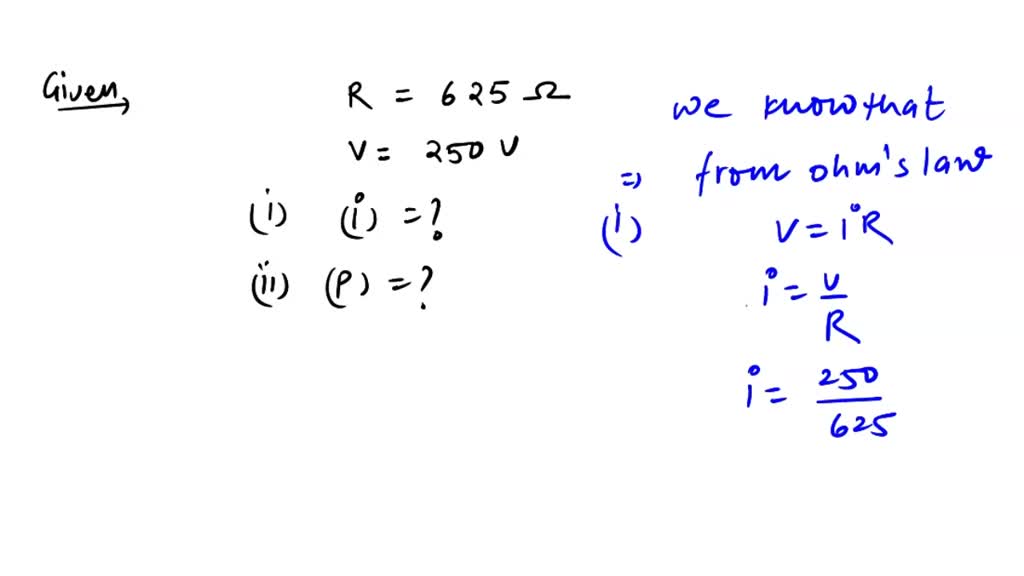 Given,
R = 625 Ω
V = 250 V
(i) (i) = ?
(ii) (P) = ?
we know that
⇒ from ohm's law
(i) V = iR
i = V/R
i = 250/625